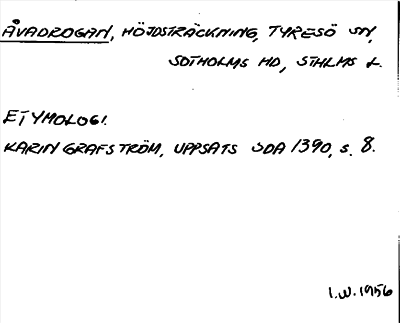 ÅVADROGAN, HÖJDSTRÄCKNING, TYRESÖ SN,
SOTHOLMS HD, STHLMS L.
ETYMOLOGI.
KARIN GRAFSTRÖM, UPPSATS SOA 1390, s. 8.
I.W. 1956